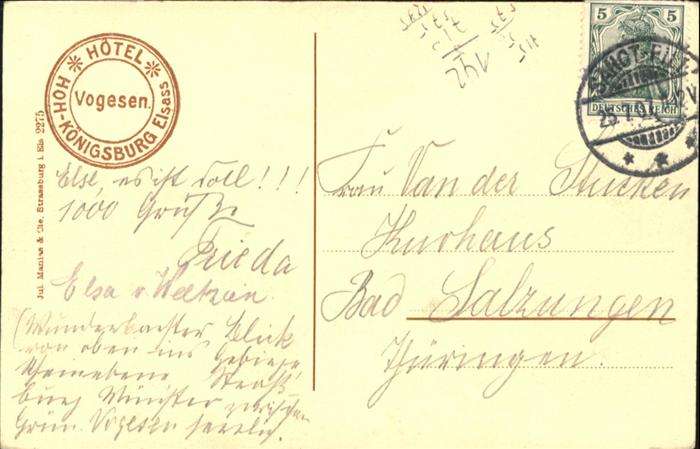 HÔTEL
HOH-KÖNIGSBURG Elsass
Vogesen.
Jul. Manias & Cie, Strassburg i. Els. 2275
5 5
DEUTSCHES REICH
SANKT-PILT
Else, es ist toll!!!
1000 Grüße
Frieda
Elsa v.
(Wunderbarster Blick
von oben ins Gebirge
Straß-
burg Münster zwischen
Grün. Vogesen herrlich.
Frau Van der Stucken
Kurhaus
Bad Salzungen
Thüringen.